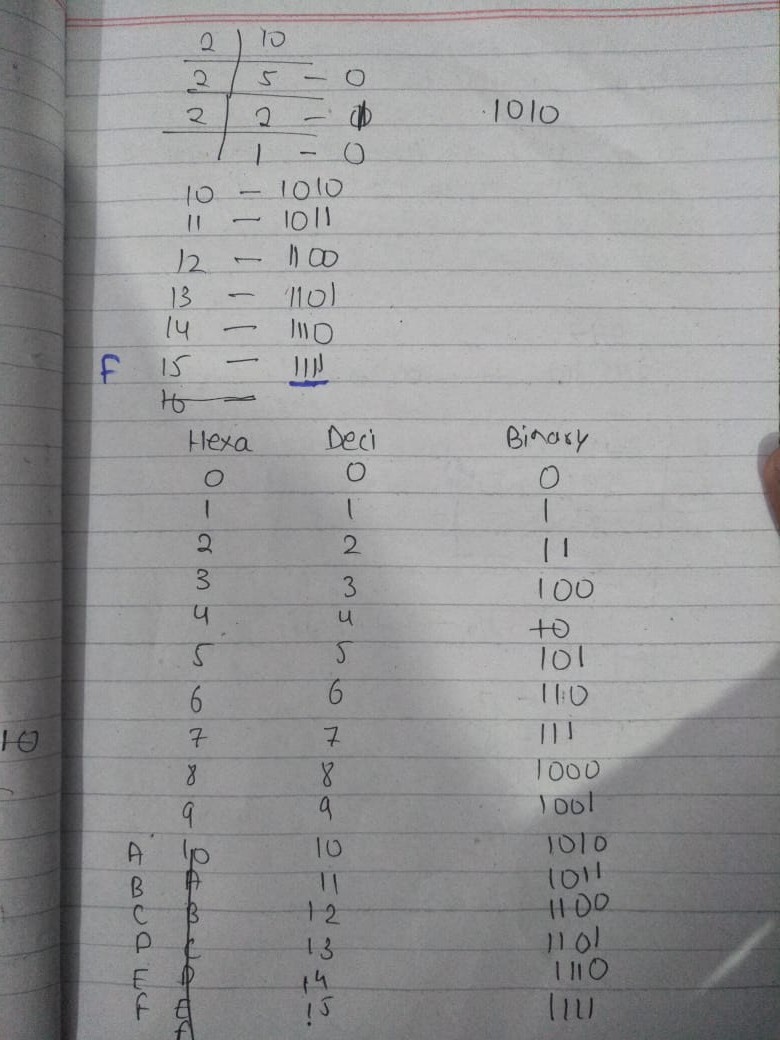 2 | 10
2 | 5 - 0
2 | 2 - 1 1010
1 - 0
10 - 1010
11 - 1011
12 - 1100
13 - 1101
14 - 1110
F 15 - 1111
16 -
Hexa Deci Binary
0 0 0
1 1 1
2 2 11
3 3 100
4 4 10
5 5 101
6 6 110
10 7 7 111
8 8 1000
9 9 1001
A 10 10 1010
B A 11 1011
C B 12 1100
D C 13 1101
E D 14 1110
F E 15 1111
F